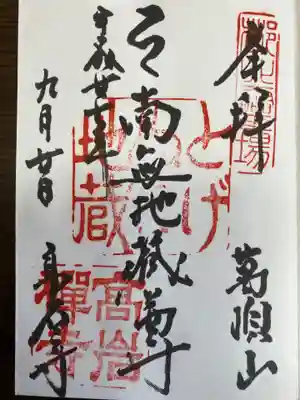 奉拝
萬頂山
南無地蔵尊
九月廿日
高岩寺
とげぬき地蔵
高岩禅寺